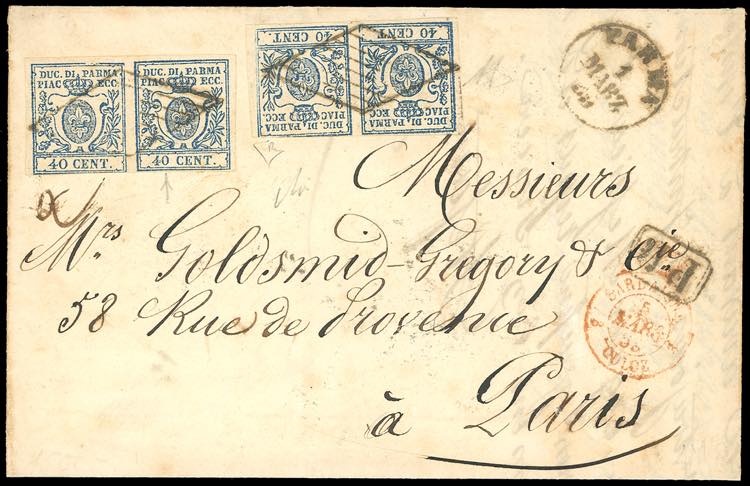 DUC. DI PARMA
PIAC ECC.
40 CENT.
DUC. DI PARMA
PIAC ECC.
40 CENT.
DUC. DI PARMA
PIAC ECC
40 CENT.
DUC. DI PARMA
PIAC ECC
40 CENT.
PARMA
1
MARZ
Messieurs
Mrs Goldsmid-Gregory & Cie
58 Rue de Provence
à Paris
P.D.
SARDA
5
MARS
CULOZ